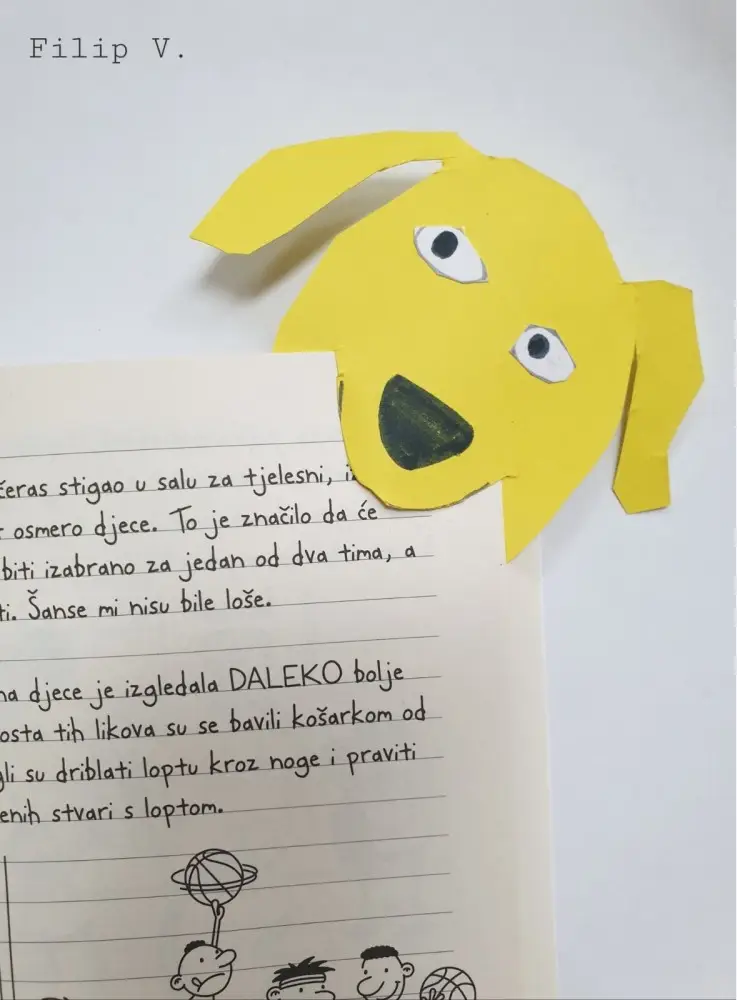 Filip V.
čeras stigao u salu za tjelesni,
osmero djece. To je značilo da će
biti izabrano za jedan od dva tima, a
ti. Šanse mi nisu bile loše.
na djece je izgledala DALEKO bolje
osta tih likova su se bavili košarkom od
gli su driblati loptu kroz noge i praviti
enih stvari s loptom.